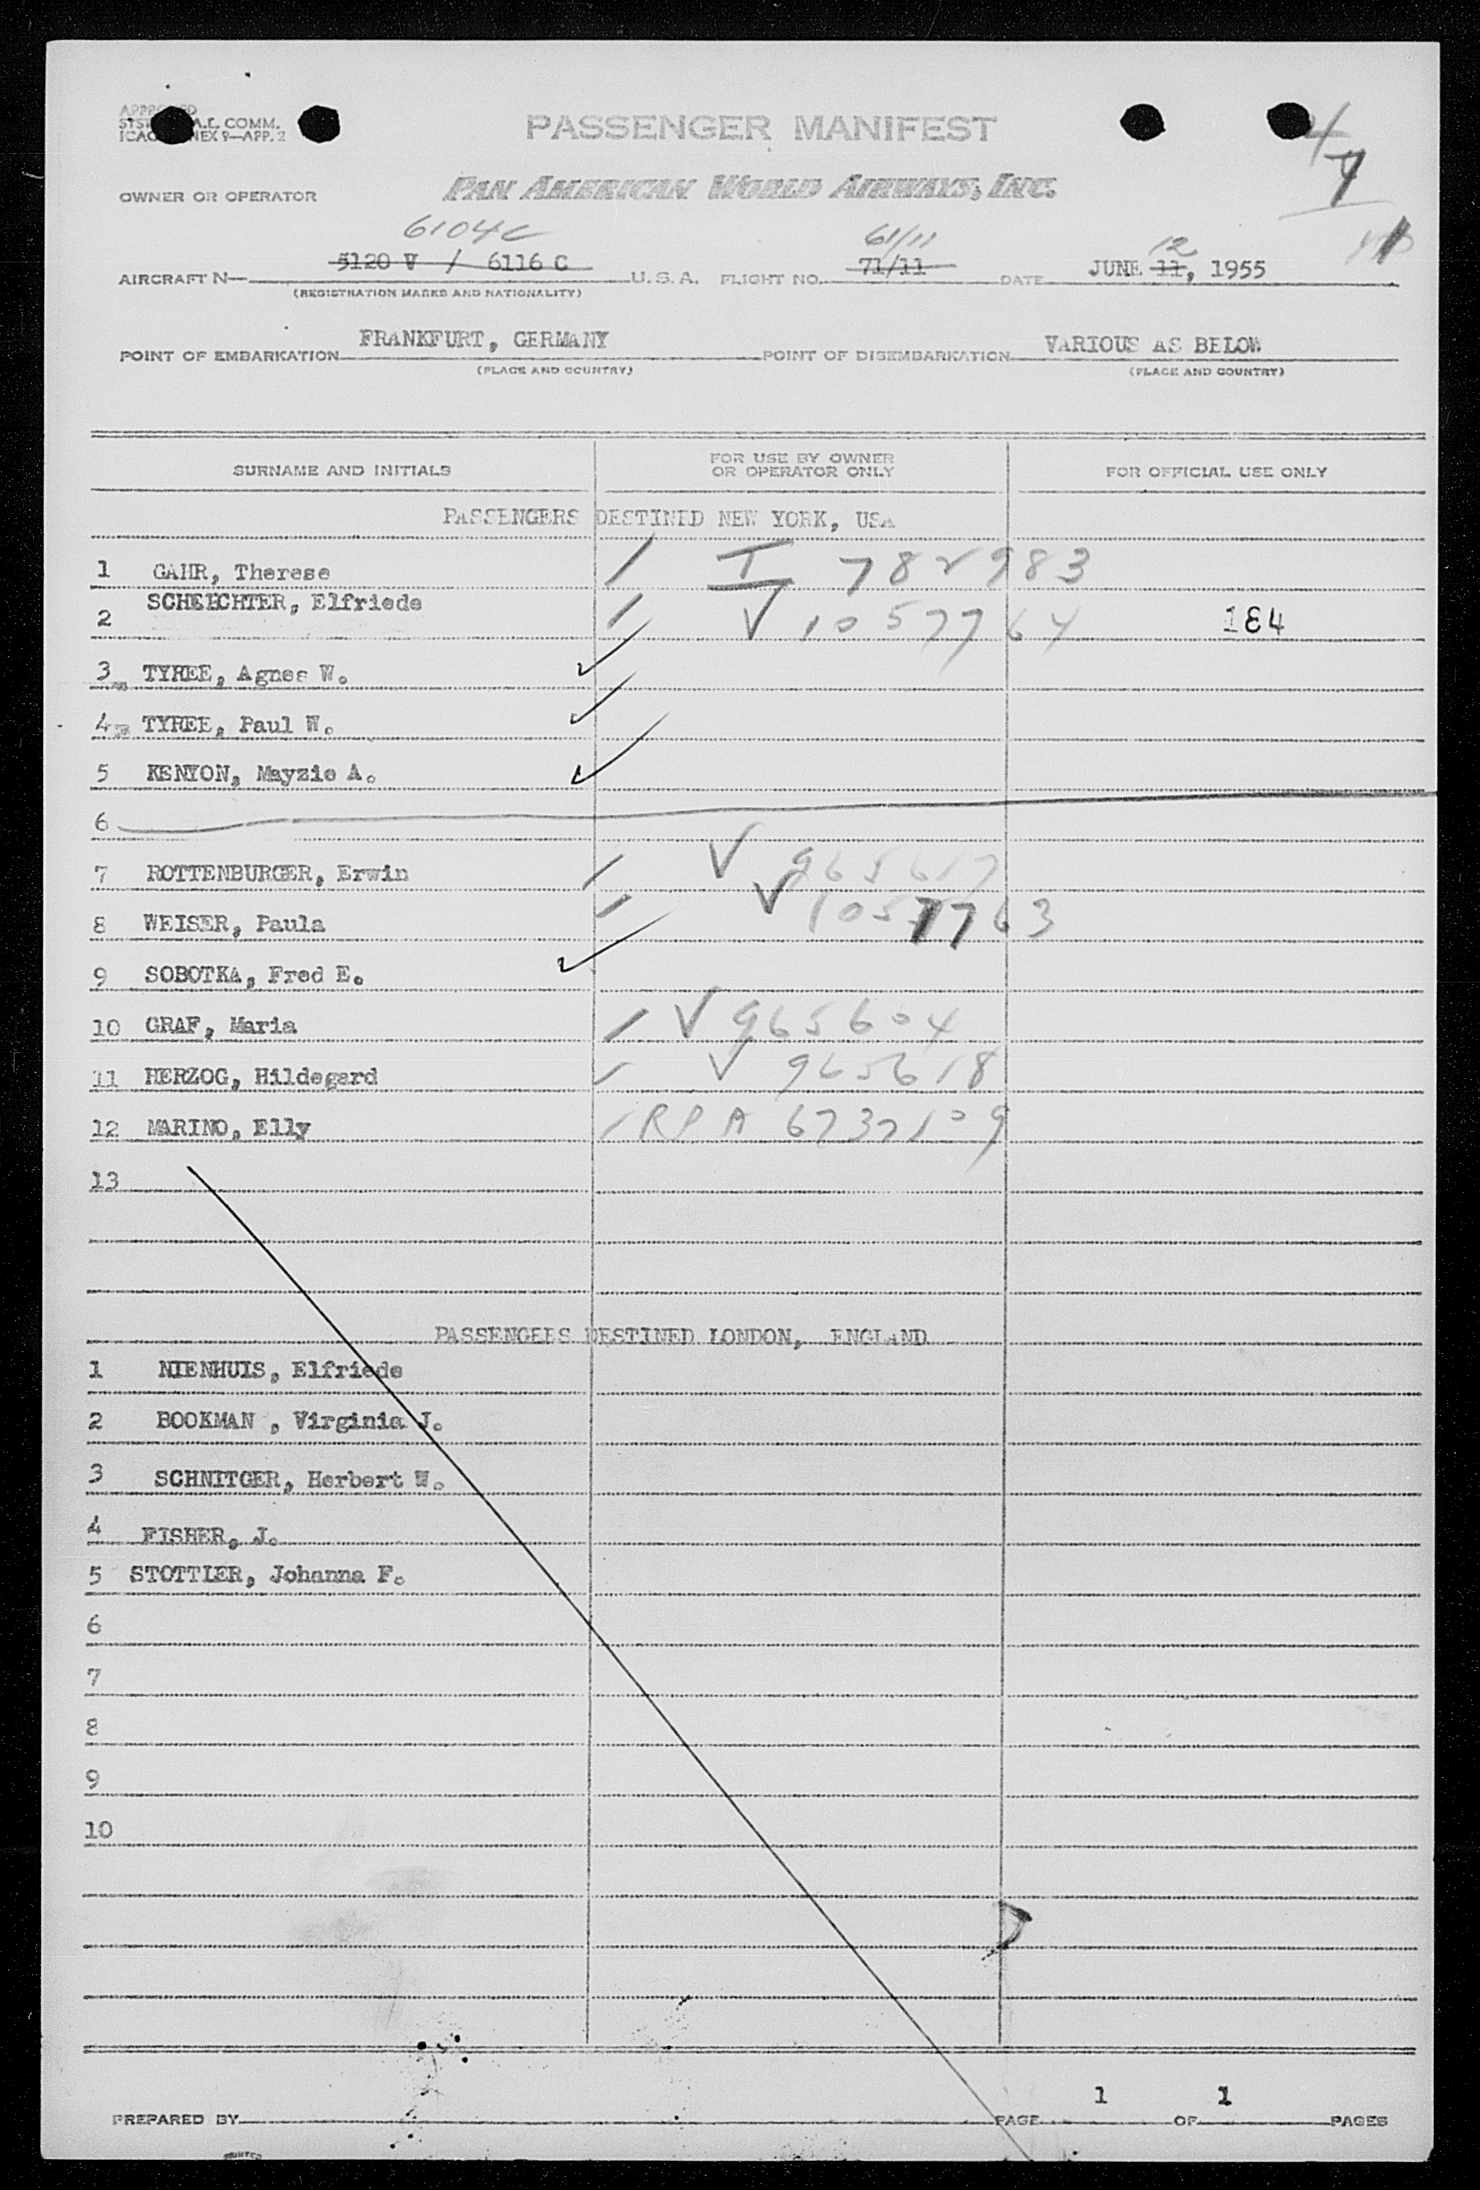 PASSENGER MANIFEST
A.E. COMM.
ANNEX 9—APP. 2
OWNER OR OPERATOR PAN AMERICAN WORLD AIRWAYS, INC.
4
7
11
6104C 61/11 12
AIRCRAFT N— 5120 V / 6116 C U. S. A. FLIGHT NO. 71/11 DATE JUNE 11, 1955
(REGISTRATION MARKS AND NATIONALITY)
POINT OF EMBARKATION FRANKFURT, GERMANY POINT OF DISEMBARKATION VARIOUS AS BELOW
(PLACE AND COUNTRY) (PLACE AND COUNTRY)
SURNAME AND INITIALS FOR USE BY OWNER OR OPERATOR ONLY FOR OFFICIAL USE ONLY
PASSENGERS DESTINED NEW YORK, USA
1 GAHR, Therese I 782983
2 SCHEECHTER, Elfriede V 1057764 184
3 TYREE, Agnes W.
4 TYREE, Paul W.
5 KENYON, Mayzie A.
6
7 ROTTENBURGER, Erwin V 965617
8 WEISER, Paula V 1057763
9 SOBOTKA, Fred E.
10 GRAF, Maria V 965604
11 HERZOG, Hildegard V 965618
12 MARINO, Elly RPA 6737109
13
PASSENGERS DESTINED LONDON, ENGLAND
1 NIENHUIS, Elfriede
2 BOOKMAN , Virginia J.
3 SCHNITGER, Herbert W.
4 FISHER, J.
5 STOTTLER, Johanna F.
6
7
8
9
10
PREPARED BY PAGE 1 OF 1 PAGES